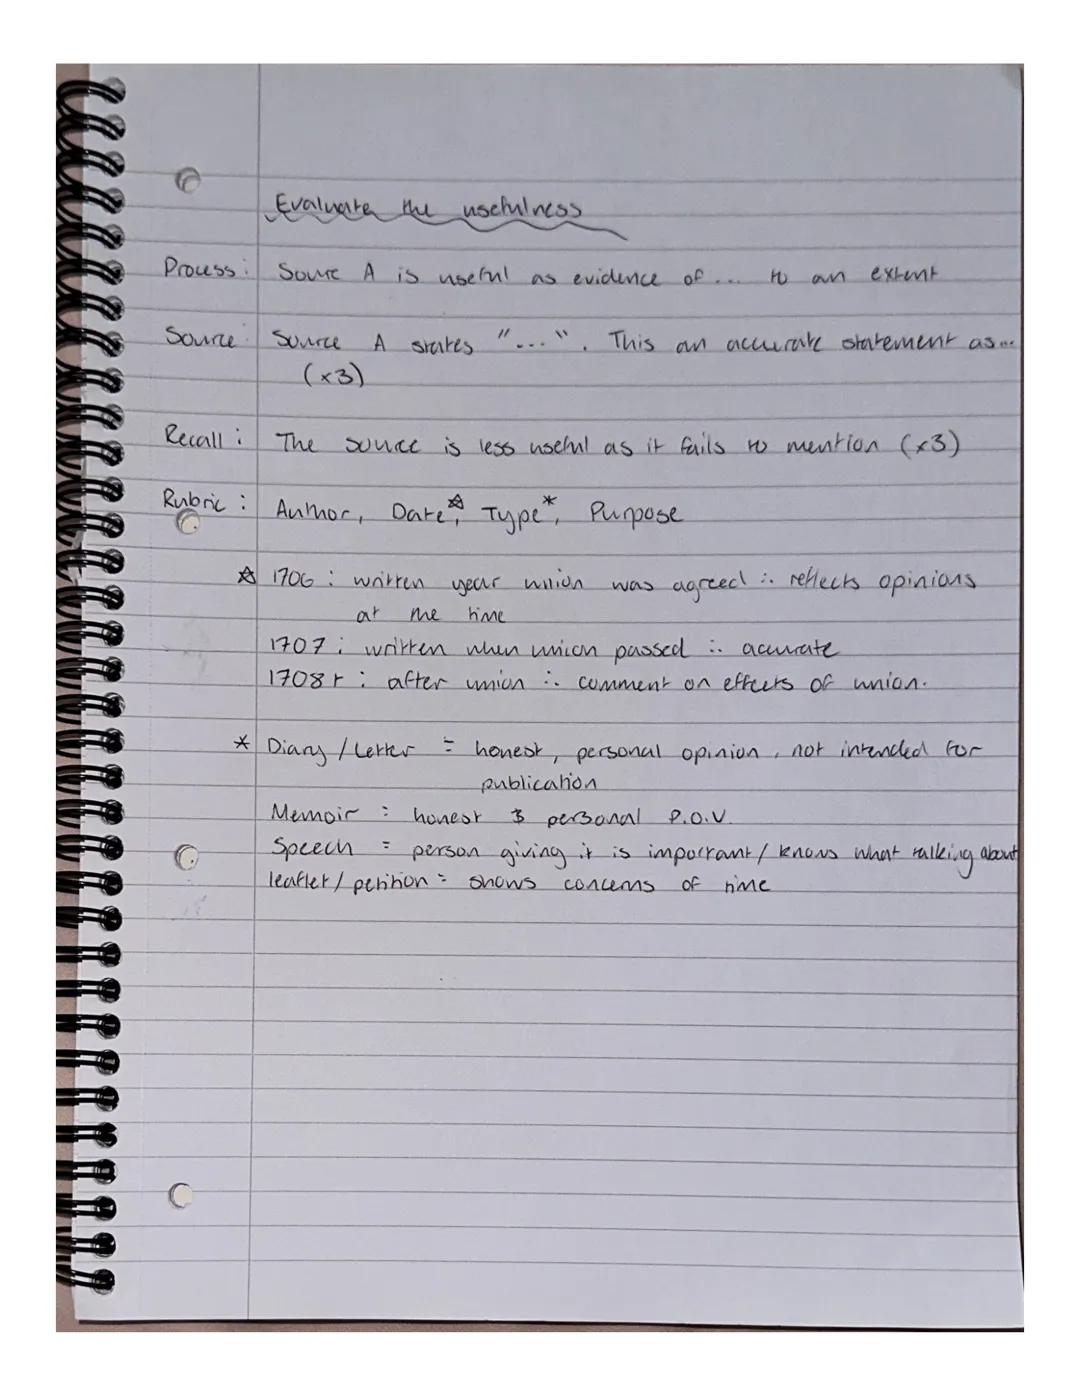 Evaluate the usefulness
Process: Source A is useful as evidence of ... to an extent
Source: Source A states "...". This an accurate statement as...
(x3)
Recall: The source is less useful as it fails to mention (x3)
Rubric: Author, Date☆, Type*, Purpose
☆ 1706: written year union was agreed ∴ reflects opinions
at the time
1707: written when union passed ∴ accurate
1708+: after union ∴ comment on effects of union.
* Diary/Letter = honest, personal opinion, not intended for
publication
Memoir = honest & personal P.O.V.
Speech = person giving it is important/knows what talking about
leaflet/petition = shows concerns of time